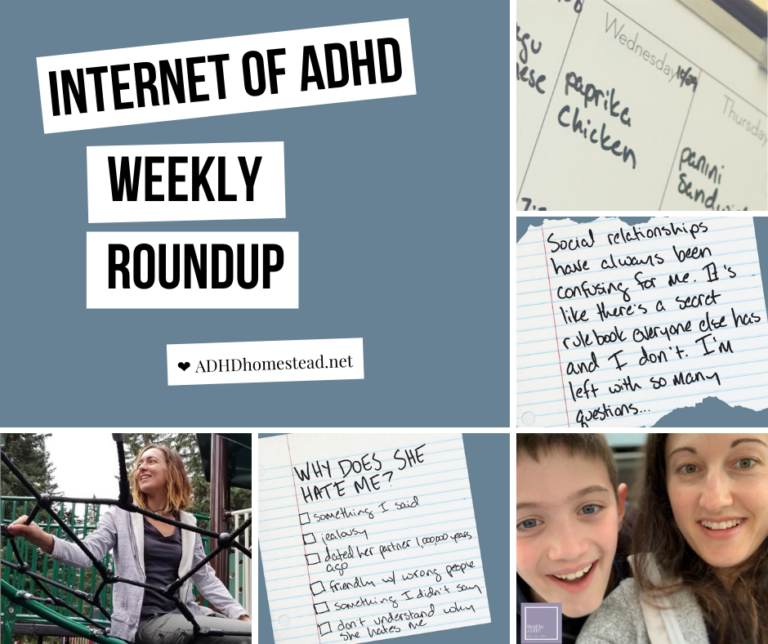 INTERNET OF ADHD
WEEKLY
ROUNDUP
❤ ADHDhomestead.net
Wednesday
Thursday
paprika
chicken
panini
Social relationships
have always been
confusing for me. It's
like there's a secret
rulebook everyone else has
and I don't. I'm
left with so many
questions...
WHY DOES SHE
HATE ME?
something I said
jealousy
dated her partner 1,000,000 years
ago
friendly w/ wrong people
something I didn't say
don't understand why
she hates me